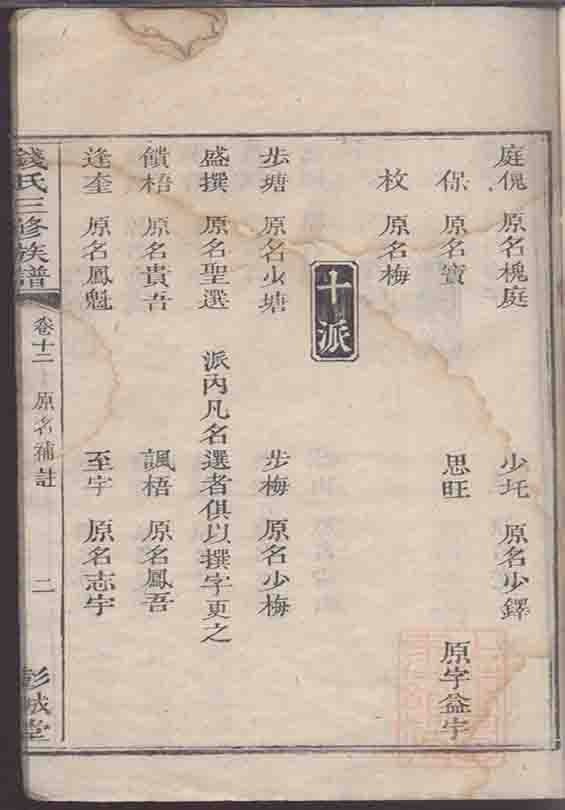 庭傀 原名槐庭 少圫 原名少鐸
保 原名寶 思旺 原字益宇
枚 原名梅
十派
步塘 原名少塘 步梅 原名少梅
盛撰 原名聖選 派內凡名選者俱以撰字更之
饋梧 原名貴吾 諷梧 原名鳳吾
逢奎 原名鳳魁 至宇 原名志宇
錢氏三修族譜 卷十二 原名補註 二 彭城堂